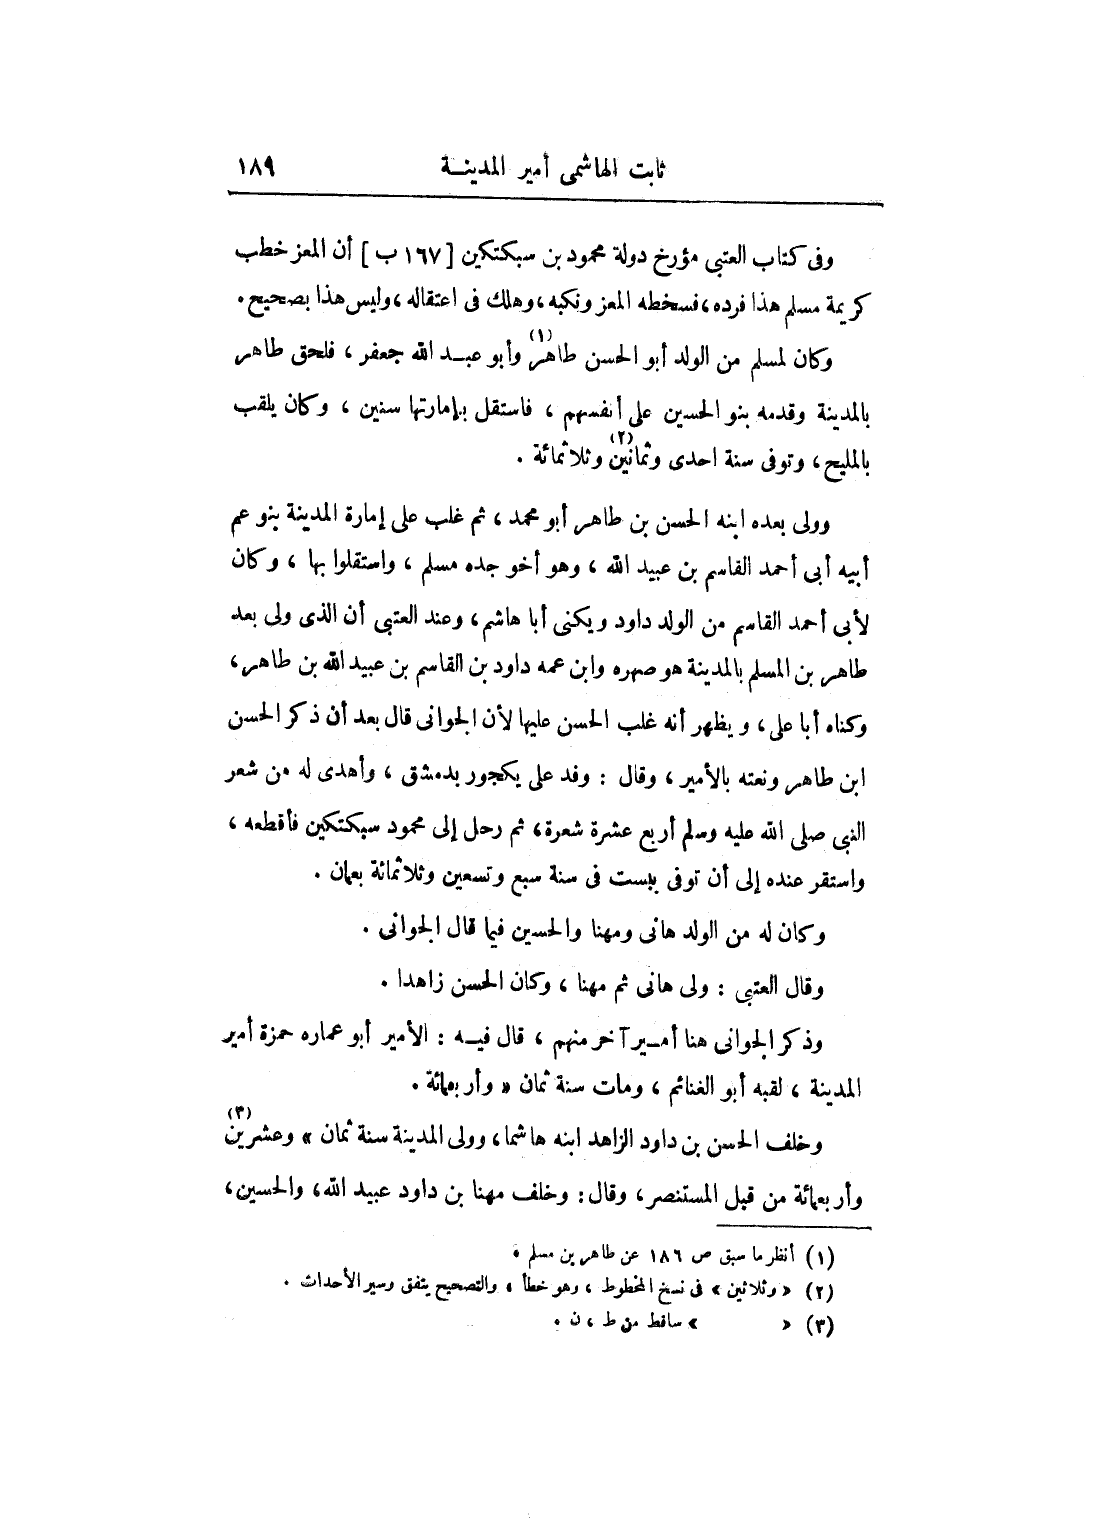 ثابت الهاشمى أمير المدينــة ١٨٩
وفى كتاب العتبى مؤرخ دولة محمود بن سبكتكين [ ١٦٧ ب ] أن المعز خطب
كريمة مسلم هذا فرده، فسخطه المعز ونكبه، وهلك فى اعتقاله، وليس هذا بصحيح.
وكان لمسلم من الولد أبو الحسن طاهر(١) وأبو عبــد الله جعفر ، فلحق طاهر
بالمدينة وقدمه بنو الحسين على أنفسهم ، فاستقل بإمارتها سنين ، وكان يلقب
بالمليح، وتوفى سنة احدى وثمانين(٢) وثلاثمائة .
وولى بعده ابنه الحسن بن طاهر أبو محمد ، ثم غلب على إمارة المدينة بنو عم
أبيه أبى أحمد القاسم بن عبيد الله ، وهو أخو جده مسلم ، واستقلوا بها ، وكان
لأبى أحمد القاسم من الولد داود ويكنى أبا هاشم، وعند العتبى أن الذى ولى بعد
طاهر بن المسلم بالمدينة هو صهره وابن عمه داود بن القاسم بن عبيد الله بن طاهر،
وكناه أبا على، ويظهر أنه غلب الحسن عليها لأن الجوانى قال بعد أن ذكر الحسن
ابن طاهر ونعته بالأمير ، وقال : وفد على يكجور بدمشق ، وأهدى له من شعر
النبى صلى الله عليه وسلم أربع عشرة شعرة، ثم رحل إلى محمود سبكتكين فأقطعه ،
واستقر عنده إلى أن توفى ببست فى سنة سبع وتسعين وثلاثمائة بعمان .
وكان له من الولد هانى ومهنا والحسين فيما قال الجوانى .
وقال العتبى : ولى هانى ثم مهنا ، وكان الحسن زاهدا .
وذكر الجوانى هنا أمــير آخر منهم ، قال فيــه : الأمير أبو عماره حمزة أمير
المدينة ، لقبه أبو الغنائم ، ومات سنة ثمان « وأربعمائة .
وخلف الحسن بن داود الزاهد ابنه هاشما، وولى المدينة سنة ثمان » وعشرين(٣)
وأربعمائة من قبل المستنصر، وقال: وخلف مهنا بن داود عبيد الله، والحسين،
(١) أنظر ما سبق ص ١٨٦ عن طاهر بن مسلم .
(٢) « وثلاثين » فى نسخ المخطوط ، وهو خطأ ، والتصحيح يتفق وسير الأحداث .
(٣) « » ساقط من ط ، ن .